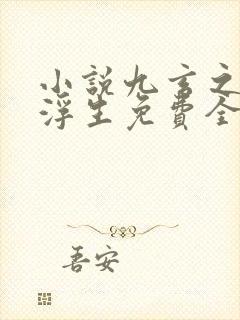 小説九言之
浮生免費全
吾安